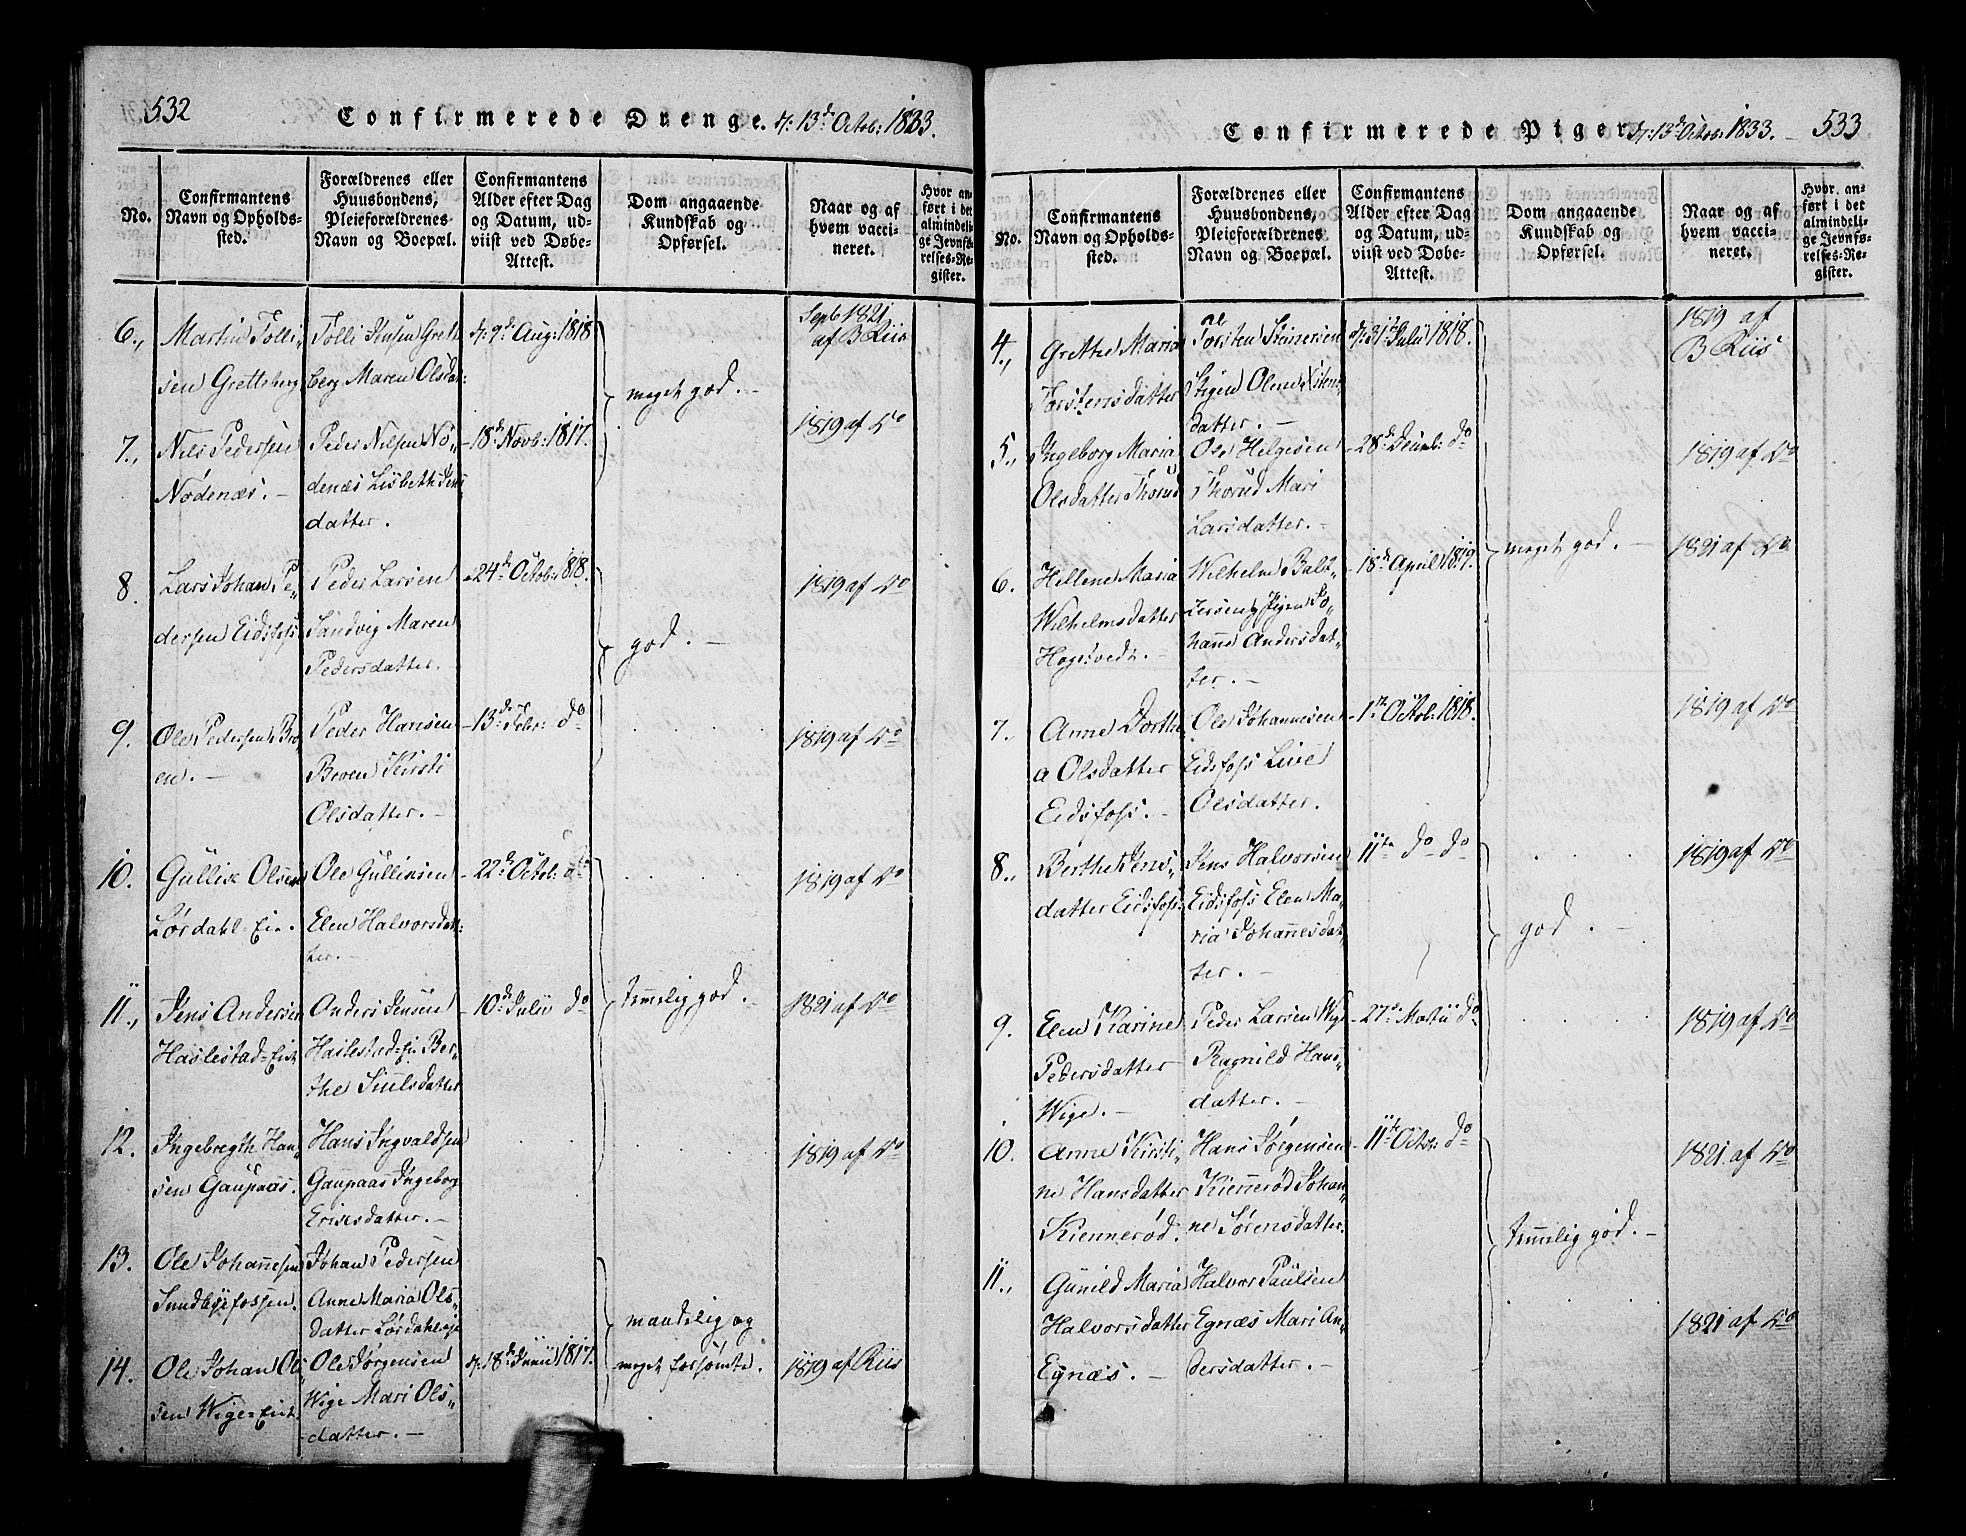 532
Confirmerede Drenge. d: 13d Octob: 1833.
No.
Confirmantens
Navn og Opholds-
sted.
Forældrenes eller
Huusbondens,
Pleieforældrenes
Navn og Boepæl.
Confirmantens
Alder efter Dag
og Datum, ud-
viist ved Døbe-
Attest.
Dom angaaende
Kundskab og
Opførsel.
Naar og af
hvem vacci-
neret.
Hvor an-
ført i det
almindeli-
ge Jevnfø-
relses-Re-
gister.
6.,
Martin Tolli-
sen Grettsberg
Tolli Jensen Gretts
berg Maren Olsdat:
d: 9d Aug: 1818
meget god. -
Sept 1821
af B Riis
7.,
Nils Pedersen
Nødenæs. -
Peder Nilsen Nø-
denæs Lisbeth Jens
datter.
- 18d Novb: 1817.
1819 af Do
8.
Lars Johan Pe-
dersen Eidsfoss
Peder Larsen
Sandvig Maren
Pedersdatter. -
- 24d Octob: 1818.
god. -
1819 af Do
9.
Ole Pedersen Bro-
en. -
Peder Hansen
Broen Kirsti
Olsdatter. -
- 13de Febr: do
1819 af Do
10.
Gullik Olsen
Lørdahl-Eie.
Ole Gulliksen
Elen Halvorsdat:
ter. -
- 22d Octob: do
1819 af Do
11.,
Jens Andersen
Haslestad-Eie
Anders Jensen
Haslestad-ei Ber-
the Simlsdatter
- 10d Julii do
temmelig god. -
1821 af Do
12.
Ingebregth Han-
sen Gaupaas.
Hans Ingvaldsen
Gaupaas Ingeborg
Eriksdatter. -
1819 af Do
13.
Ole Johannesen
Sundbyefossen.
Johan Pedersen
Anne Maria Ols-
datter Lørdahleje
maadelig og
meget forsømte.
14.
Ole Johan Ol-
sen Wige-Eie
Ole Jørgensen
Wige Mari Ols-
datter. -
d: 18d Junii 1817.
1819 af Riis
Confirmerede Piger d: 13d Octob: 1833. - 533
No.
Confirmantens
Navn og Opholds-
sted.
Forældrenes eller
Huusbondens,
Pleieforældrenes
Navn og Boepæl.
Confirmantens
Alder efter Dag
og Datum, ud-
viist ved Døbe-
Attest.
Dom angaaende
Kundskab og
Opførsel.
Naar og af
hvem vacci-
neret.
Hvor an-
ført i det
almindeli-
ge Jevnfø-
relses-Re-
gister.
4.,
Grethe Maria
Torstensdatter
Torsten Steinersen
Stigen Olena
datter. -
d: 31te Julii 1818.
1819 af
B Riis
5.,
Ingeborg Maria
Olsdatter Thorud
Ole Helgesen
Thorud Mari
Larsdatter. -
- 28d Decmb: do
1819 af Do
6.
Hellene Maria
Wilhelmsdatter
Hagetvedt. -
Wilhelm Balt-
zersen Pigen Jo-
hanne Andersdat-
ter. -
- 18d April 1819.
meget god. -
1821 af Do
7.
Anne Dorthe
a Olsdatter
Eidsfoss. -
Ole Johannesen
Eidsfoss Live
Olsdatter.
- 1te Octob: 1818.
1819 af Do
8.,
Berthe Jens-
datter Eidsfoss:
Jens Halvorsen
Eidsfoss Elen Ma-
ria Johannesdat-
ter. -
11te do do
god. -
1819 af Do
9.
Elen Karine
Pedersdatter
Wige. -
Peder Larsen Wige
Ragnild Hans-
datter. -
- 27de Martii do
1819 af Do
10.
Anne Kirsti-
ne Hansdatter
Kiennerød.
Hans Jørgensen
Kiennerød Johan-
ne Sørensdatter:
- 11te Octob: do
temmelig god. -
1821. af Do
11.,
Gunild Maria
Halvorsdatter
Egnæs. -
Halvor Paulsen
Egnæs Mari An-
dersdatter. -
1821 af Do